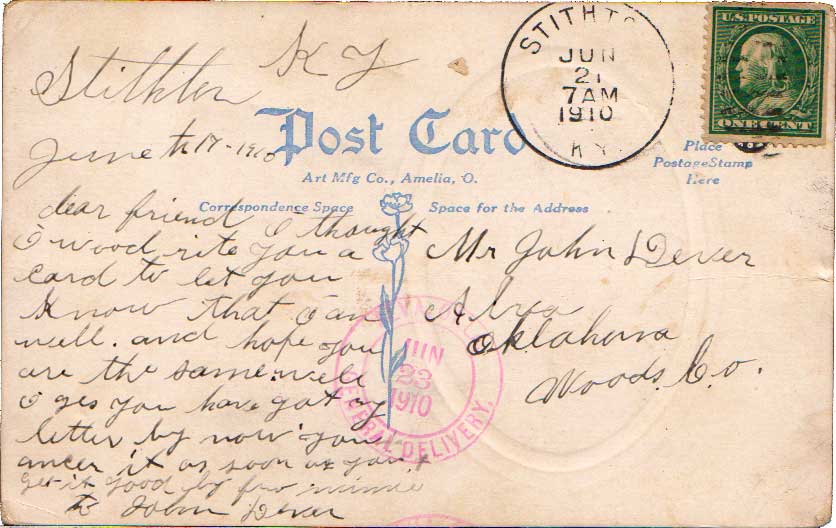 Stithton KY
June th 17 - 1910
dear friend I thought
I wood rite you a
card to let you
know that I am
well. and hope you
are the same. well
I ges you have got my
letter by now you
ancer it as soon as you
get it good by fro minnie
to John Dever
Post Card
Art Mfg Co., Amelia, O.
Correspondence Space
Space for the Address
Mr John Dever
Alva
Oklahoma
Woods. Co.
STITHTO
JUN
21
7AM
1910
KY.
U.S. POSTAGE
ONE CENT
Place
Postage Stamp
Here
JUN
23
1910
GENERAL DELIVERY.